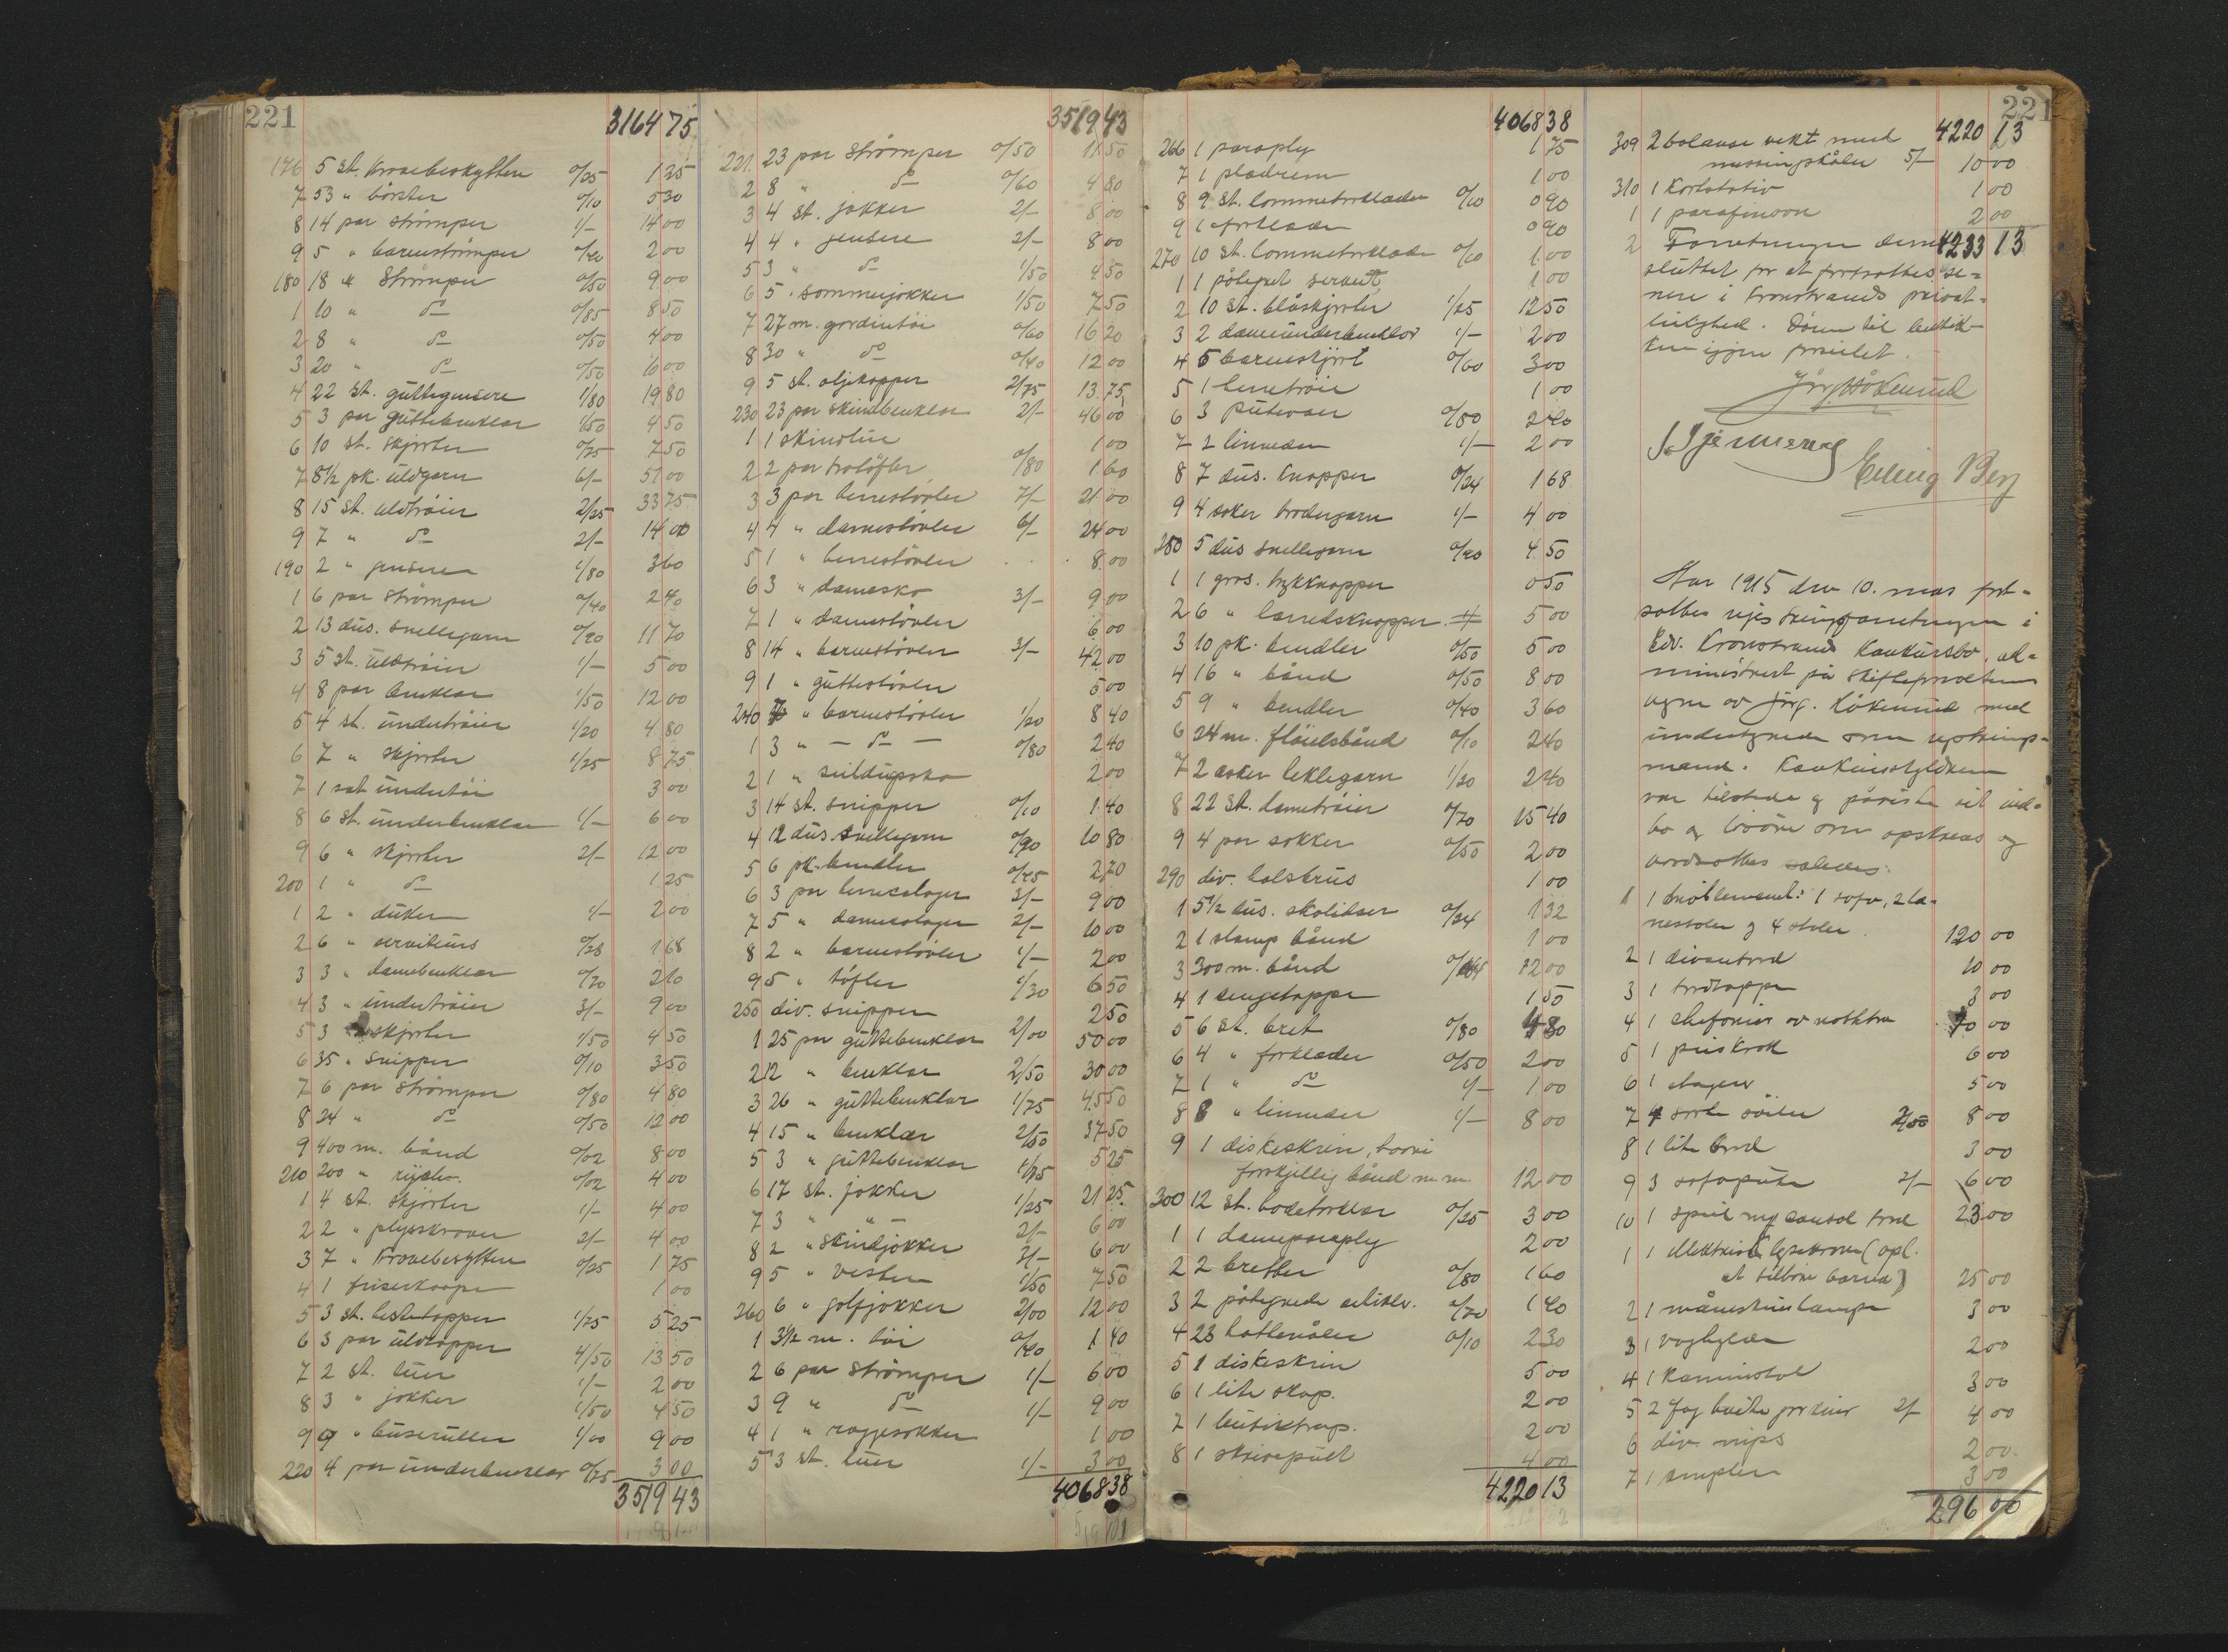 221
3164 75
176 5 st. kravebeskyttere 0/25 1 25
7 53 " börster 0/10 5 30
8 14 par strömper 1/- 14 00
9 5 " barneströmper 0/40 2 00
180 18 " Strömper 0/50 9 00
1 10 " do 0/85 8 50
2 8 " do 0/50 4 00
3 20 " do 0/50 10 00
4 22 st. guttegensere 1/80 19 80
5 3 par guttebenklær 1/50 4 50
6 10 st. skjorter 0/75 7 50
7 8½ pk. uldgarn 6/- 51 00
8 15 st. uldtröier 2/25 33 75
9 7 " do 2/- 14 00
190 2 " gensere 1/80 3 60
1 6 par strömper 0/40 2 40
2 13 dus. snellegarn 0/90 11 70
3 5 st. uldtröier 1/- 5 00
4 8 par benklær 1/50 12 00
5 4 st. undertröier 1/20 4 80
6 7 " skjorter 1/25 8 75
7 1 sæt undertöi 3 00
8 6 st. underbenklær 1/- 6 00
9 6 " skjorter 2/- 12 00
200 1 " do 1 25
1 2 " duker 1/- 2 00
2 6 " serviteurs 0/28 1 68
3 3 " damebenklær 0/70 2 10
4 3 " undertröier 3/- 9 00
5 3 skjorter 1/50 4 50
6 35 " snipper 0/10 3 50
7 6 par strömper 0/80 4 80
8 24 " do 0/50 12 00
9 400 m. bånd 0/02 8 00
210 200 " rysch. 0/02 4 00
1 4 st. skjörter 1/- 4 00
2 2 " plyskraver 2/- 4 00
3 7 " kravebesyttere 0/25 1 75
4 1 friserkaape 1 00
5 3 st. hestetæpper 1/75 5 25
6 3 par uldtæpper 4/50 13 50
7 2 st. luer 1/- 2 00
8 3 " jakker 1/50 4 50
9 9 " buseruller 1/00 9 00
220 4 par underbenklær 0/75 3 00
3519 43
3519 43
221. 23 par strömper 0/50 11 50
2 8 " do 0/60 4 80
3 4 st. jakker 2/- 8 00
4 4 " gensere 2/- 8 00
5 3 " do 1/50 4 50
6 5 " sommerjakker 1/50 7 50
7 27 m. gardintöi 0/60 16 20
8 30 " do 0/40 12 00
9 5 st. oljekapper 2/75 13 75
230 23 par skindbenklær 2/- 46 00
1 1 skindlue 1 00
2 2 par tretöfler 0/80 1 60
3 3 par herrestövler 7/- 21 00
4 4 " damestövler 6/- 24 00
5 1 " herrestövler 8 00
6 3 " damesko 3/- 9 00
7 1 " damestövler 6 00
8 14 " barnestövler 3/- 42 00
9 1 " guttestövler 5 00
240 7 " barnestövler 1/20 8 40
1 3 " - do - 0/80 2 40
2 1 " seildugssko 2 00
3 14 st. snipper 0/10 1 40
4 12 dus. snellegarn 0/90 10 80
5 6 pk. bendler 0/45 2 70
6 3 par herrecaloger 3/- 9 00
7 5 " damecaloger 2/- 10 00
8 2 " barnestövler 1/- 2 00
9 5 " töfler 1/30 6 50
250 div. snipper 2 50
1 25 par guttebenklær 2/00 50 00
2 12 " benklær 2/50 30 00
3 26 " guttebenklær 1/75 45 50
4 15 " benklær 2/50 37 50
5 3 " guttebenklær 1/75 5 25
6 17 st. jakker 1/25 21 25
7 3 " " 2/- 6 00
8 2 " skindjakker 3/- 6 00
9 5 " vester 1/50 7 50
260 6 " golfjakker 2/00 12 00
1 3½ m. töi 0/40 1 40
2 6 par strömper 1/- 6 00
3 9 " do 1/- 9 00
4 1 " raggesokker 1 00
5 3 st. luer 1/- 3 00
4068 38
221
4068 38
266 1 paraply 1 75
7 1 plædrem 1 00
8 9 st. lommetörklæder 0/10 0 90
9 1 forklæde 0 90
270 10 st. lommetörklæder 0/10 1 00
1 1 påtegnet serviett 1 00
2 10 st. blåskjorter 1/25 12 50
3 2 dameunderbenklær 1/- 2 00
4 5 barneskjört 0/60 3 00
5 1 herretröie 1 00
6 3 putevar 0/80 2 40
7 2 linneder 1/- 2 00
8 7 dus. knapper 0/24 1 68
9 4 æsker brodergarn 1/- 4 00
280 5 dus snellegarn 0/90 4 50
1 1 gros. trykknapper 0 50
2 6 " lærredsknapper 5 00
3 10 pk. bendler 0/50 5 00
4 16 " bånd 0/50 8 00
5 9 " bendler 0/40 3 60
6 24 m. flöielsbånd 0/10 2 40
7 2 æsker heklegarn 1/20 2 40
8 22 st. dametröier 0/70 15 40
9 4 par sokker 0/50 2 00
290 div. halskrus 1 00
1 5½ dus. skolisser 0/24 1 32
2 1 slump bånd 1 00
3 300 m. bånd 0/04 12 00
4 1 sengetæppe 1 50
5 6 st. bret 0/80 4 80
6 4 " forklæder 0/50 2 00
7 1 " do 1/- 1 00
8 8 " linneder 1/- 8 00
9 1 diskeskrin, hvori
forskjellig bånd m m. 12 00
300 12 st. hodetörklær 0/25 3 00
1 1 dameparaply 2 00
2 2 bretter 0/80 1 60
3 2 påtegnede 0/70 1 40
4 23 hattenåler 0/10 2 30
5 1 diskeskrin 5 00
6 1 lite skap. 2 00
7 1 butiktrap. 2 00
8 1 skrivepult 4 00
4220 13
4220 13
309 2 balanse vekt med
messingskåler 5/- 10 00
310 1 kortstativ 1 00
1 1 parafinovn 2 00
2 Forretningen dermed 4233 13
sluttet for at fortsættes se=
nere i Kronstrands privat-
leilighed. Dören til butik-
ken igjen forseilet.
Jörg. Håkenrud
Erling Berg
Aar 1915 den 10. mars fort-
sattes rejstreringsforretningen i
Edv. Kronstrands konkursbo, ad-
ministrert på skifteforvalterens
vegne av Jörg. Håkenrud med
undertegnede som opskrivnings-
mænd. Konkursskyldneren
var tilstede og påviste sit ind-
bo og lösöre som opskreves og
værdsattes saaledes:
1 1 möblement: 1 sofa, 2 læ-
nestoler og 4 stoler. 120 00
2 1 divanbord 10 00
3 1 bordtæppe 3 00
4 1 chefonier av nöttetræ 70 00
5 1 piiskrak 6 00
6 1 etagere 5 00
7 4 sorte söiler 2/50 8 00
8 1 lite bord 3 00
9 3 sofaputer 2/- 6 00
10 1 speil med consol bord 23 00
1 1 elektrisk lysekrone (opl.
at tilhöre barna) 25 00
2 1 måneskinslampe 3 00
3 1 væghylde 2 00
4 1 kaminstol 3 00
5 2 fag hvite gardiner 2/- 4 00
6 div. nips 2 00
7 1 ampler 3 00
296 00